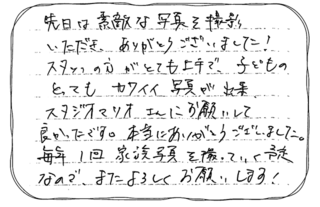 先日は素敵な写真を撮影
いただき、ありがとうございました!
スタッフの方がとても上手で、子どもの
とっても カワイイ 写真が 出来
スタジオマリオさんにお願いして
良かったです。本当にありがとうございました。
毎年1回 家族写真を撮っていく予定
なので、またよろしくお願いします!